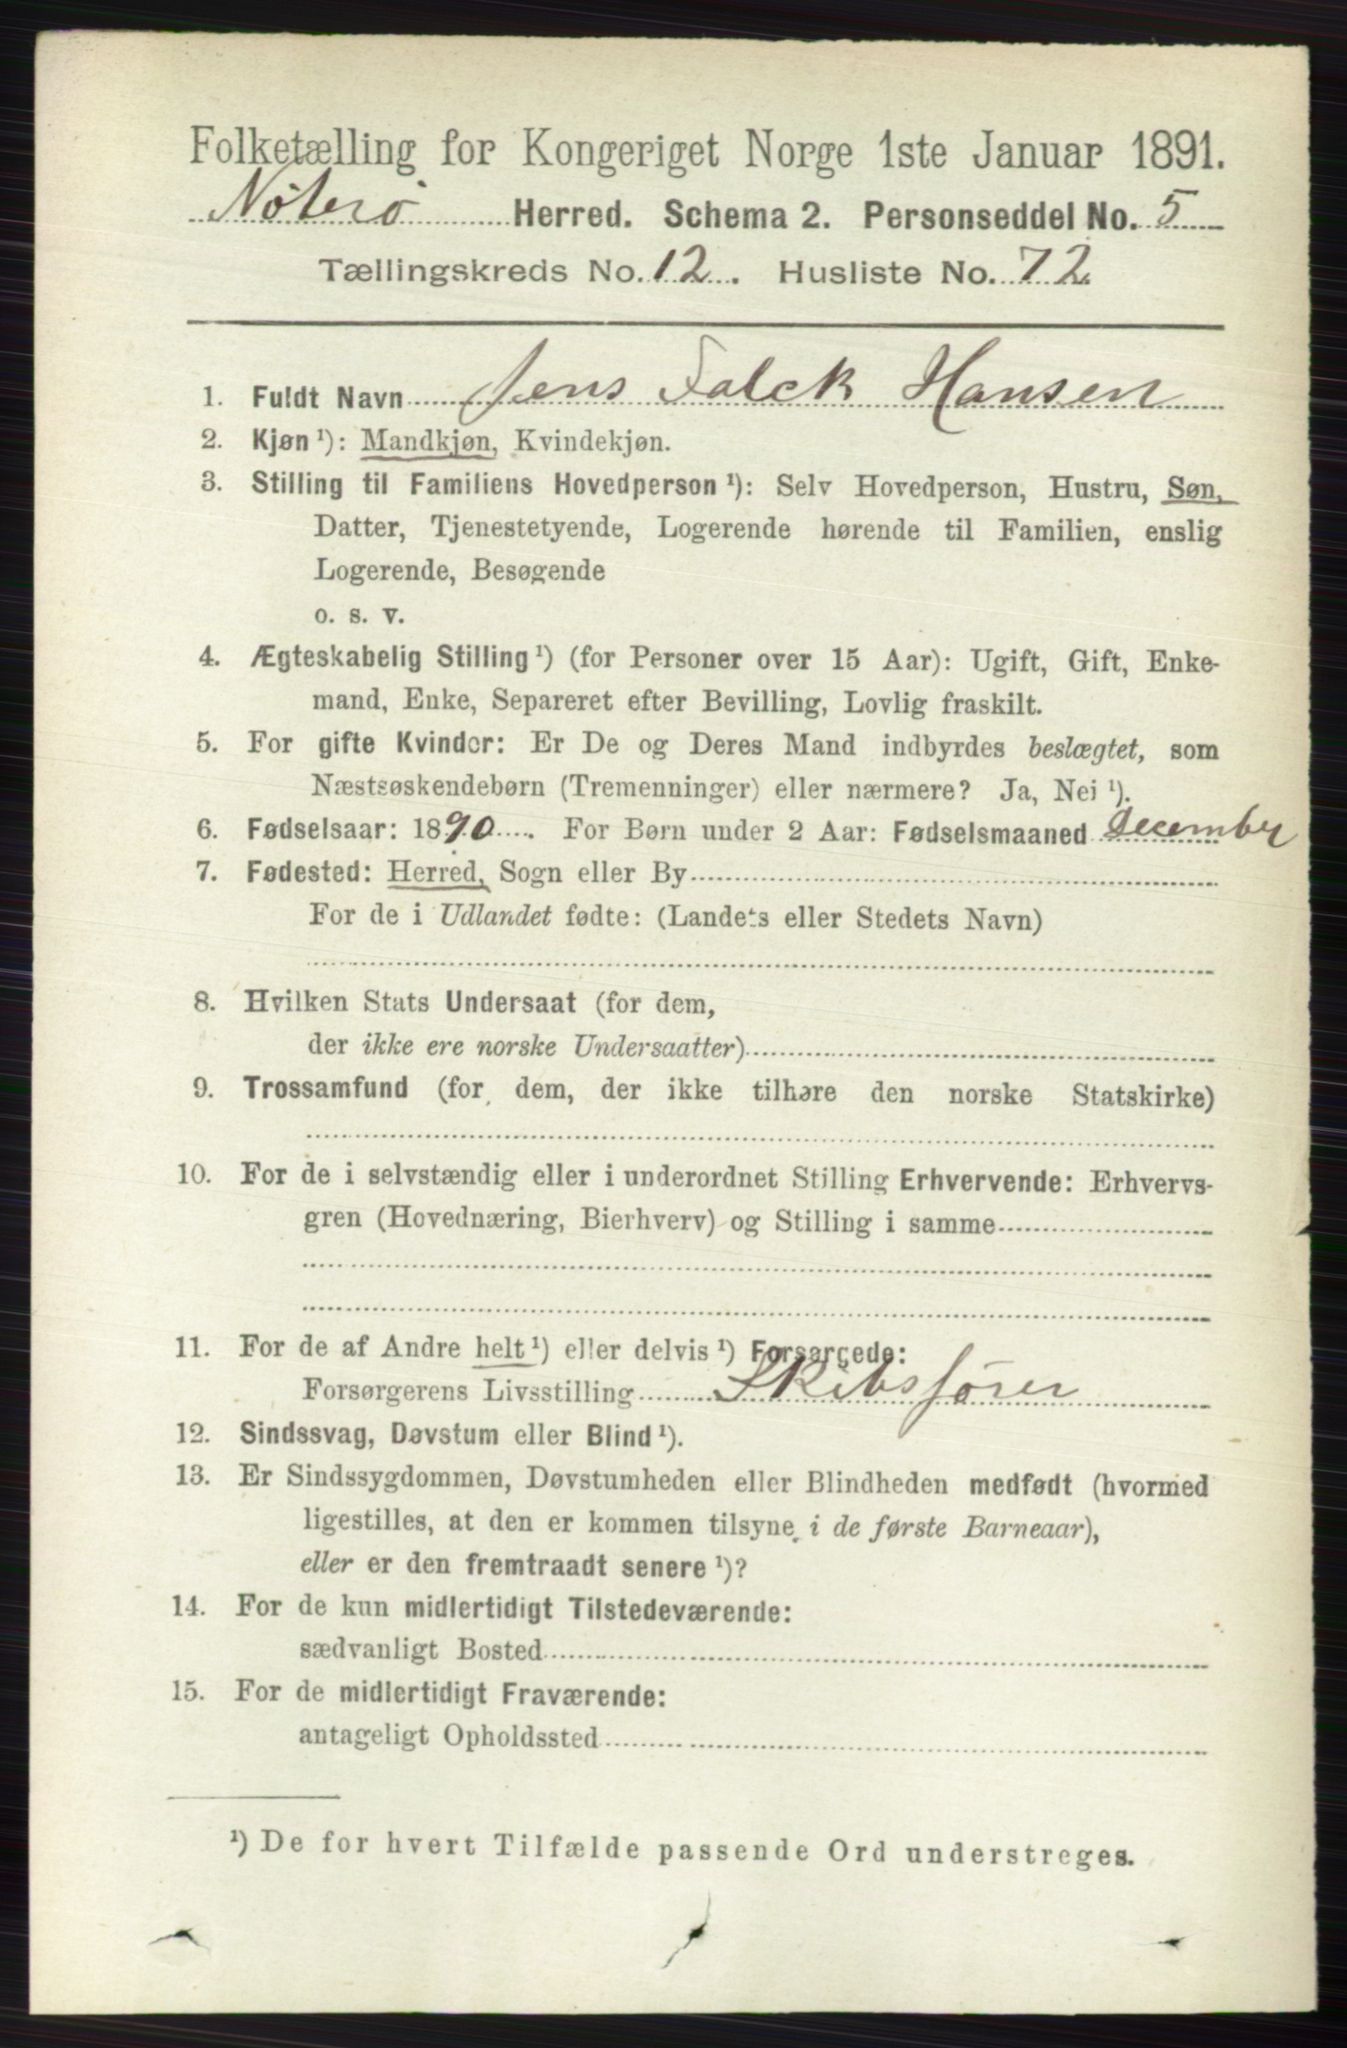 Folketælling for Kongeriget Norge 1ste Januar 1891.
Nøterø Herred. Schema 2. Personseddel No. 5
Tællingskreds No. 12. Husliste No. 72.
1. Fuldt Navn Jens Falck Hansen
2. Kjøn ¹): Mandkjøn, Kvindekjøn.
3. Stilling til Familiens Hovedperson ¹): Selv Hovedperson, Hustru, Søn,
Datter, Tjenestetyende, Logerende hørende til Familien, enslig
Logerende, Besøgende
o. s. v.
4. Ægteskabelig Stilling ¹) (for Personer over 15 Aar): Ugift, Gift, Enke-
mand, Enke, Separeret efter Bevilling, Lovlig fraskilt.
5. For gifte Kvinder: Er De og Deres Mand indbyrdes beslægtet, som
Næstsøskendebørn (Tremenninger) eller nærmere? Ja, Nei ¹).
6. Fødselsaar: 1890. For Børn under 2 Aar: Fødselsmaaned December
7. Fødested: Herred, Sogn eller By
For de i Udlandet fødte: (Landets eller Stedets Navn)
8. Hvilken Stats Undersaat (for dem,
der ikke ere norske Undersaatter)
9. Trossamfund (for dem, der ikke tilhøre den norske Statskirke)
10. For de i selvstændig eller i underordnet Stilling Erhvervende: Erhvervs-
gren (Hovednæring, Bierhverv) og Stilling i samme
11. For de af Andre helt ¹) eller delvis ¹) Forsørgede:
Forsørgerens Livsstilling Skibsfører
12. Sindssvag, Døvstum eller Blind ¹).
13. Er Sindssygdommen, Døvstumheden eller Blindheden medfødt (hvormed
ligestilles, at den er kommen tilsyne i de første Barneaar),
eller er den fremtraadt senere ¹)?
14. For de kun midlertidigt Tilstedeværende:
sædvanligt Bosted
15. For de midlertidigt Fraværende:
antageligt Opholdssted
¹) De for hvert Tilfælde passende Ord understreges.